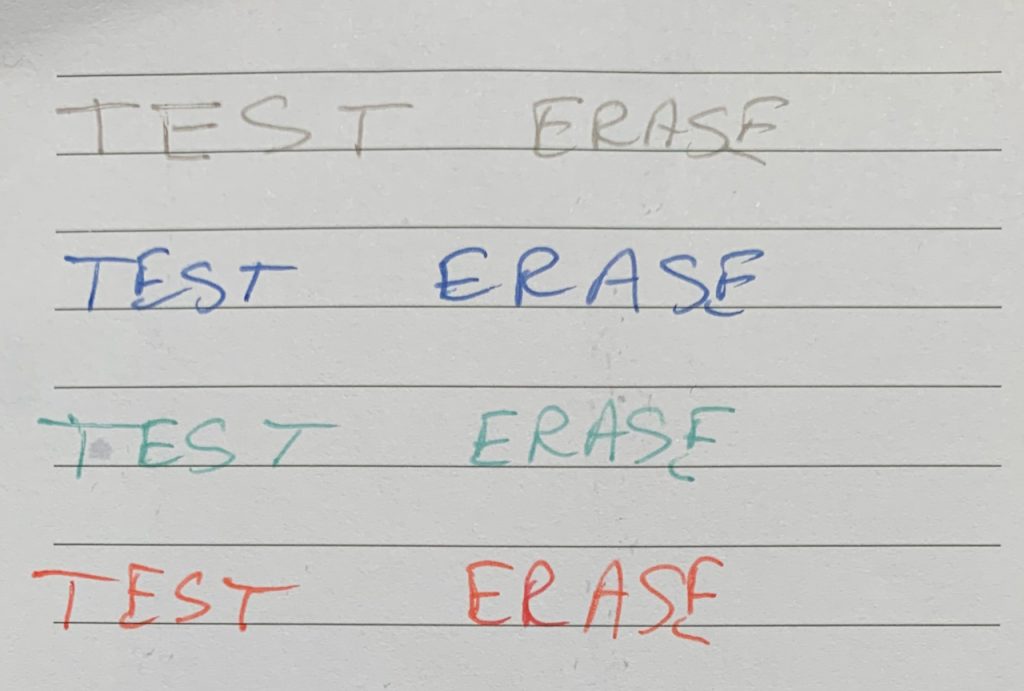 TEST ERASE
TEST ERASE
TEST ERASE
TEST ERASE